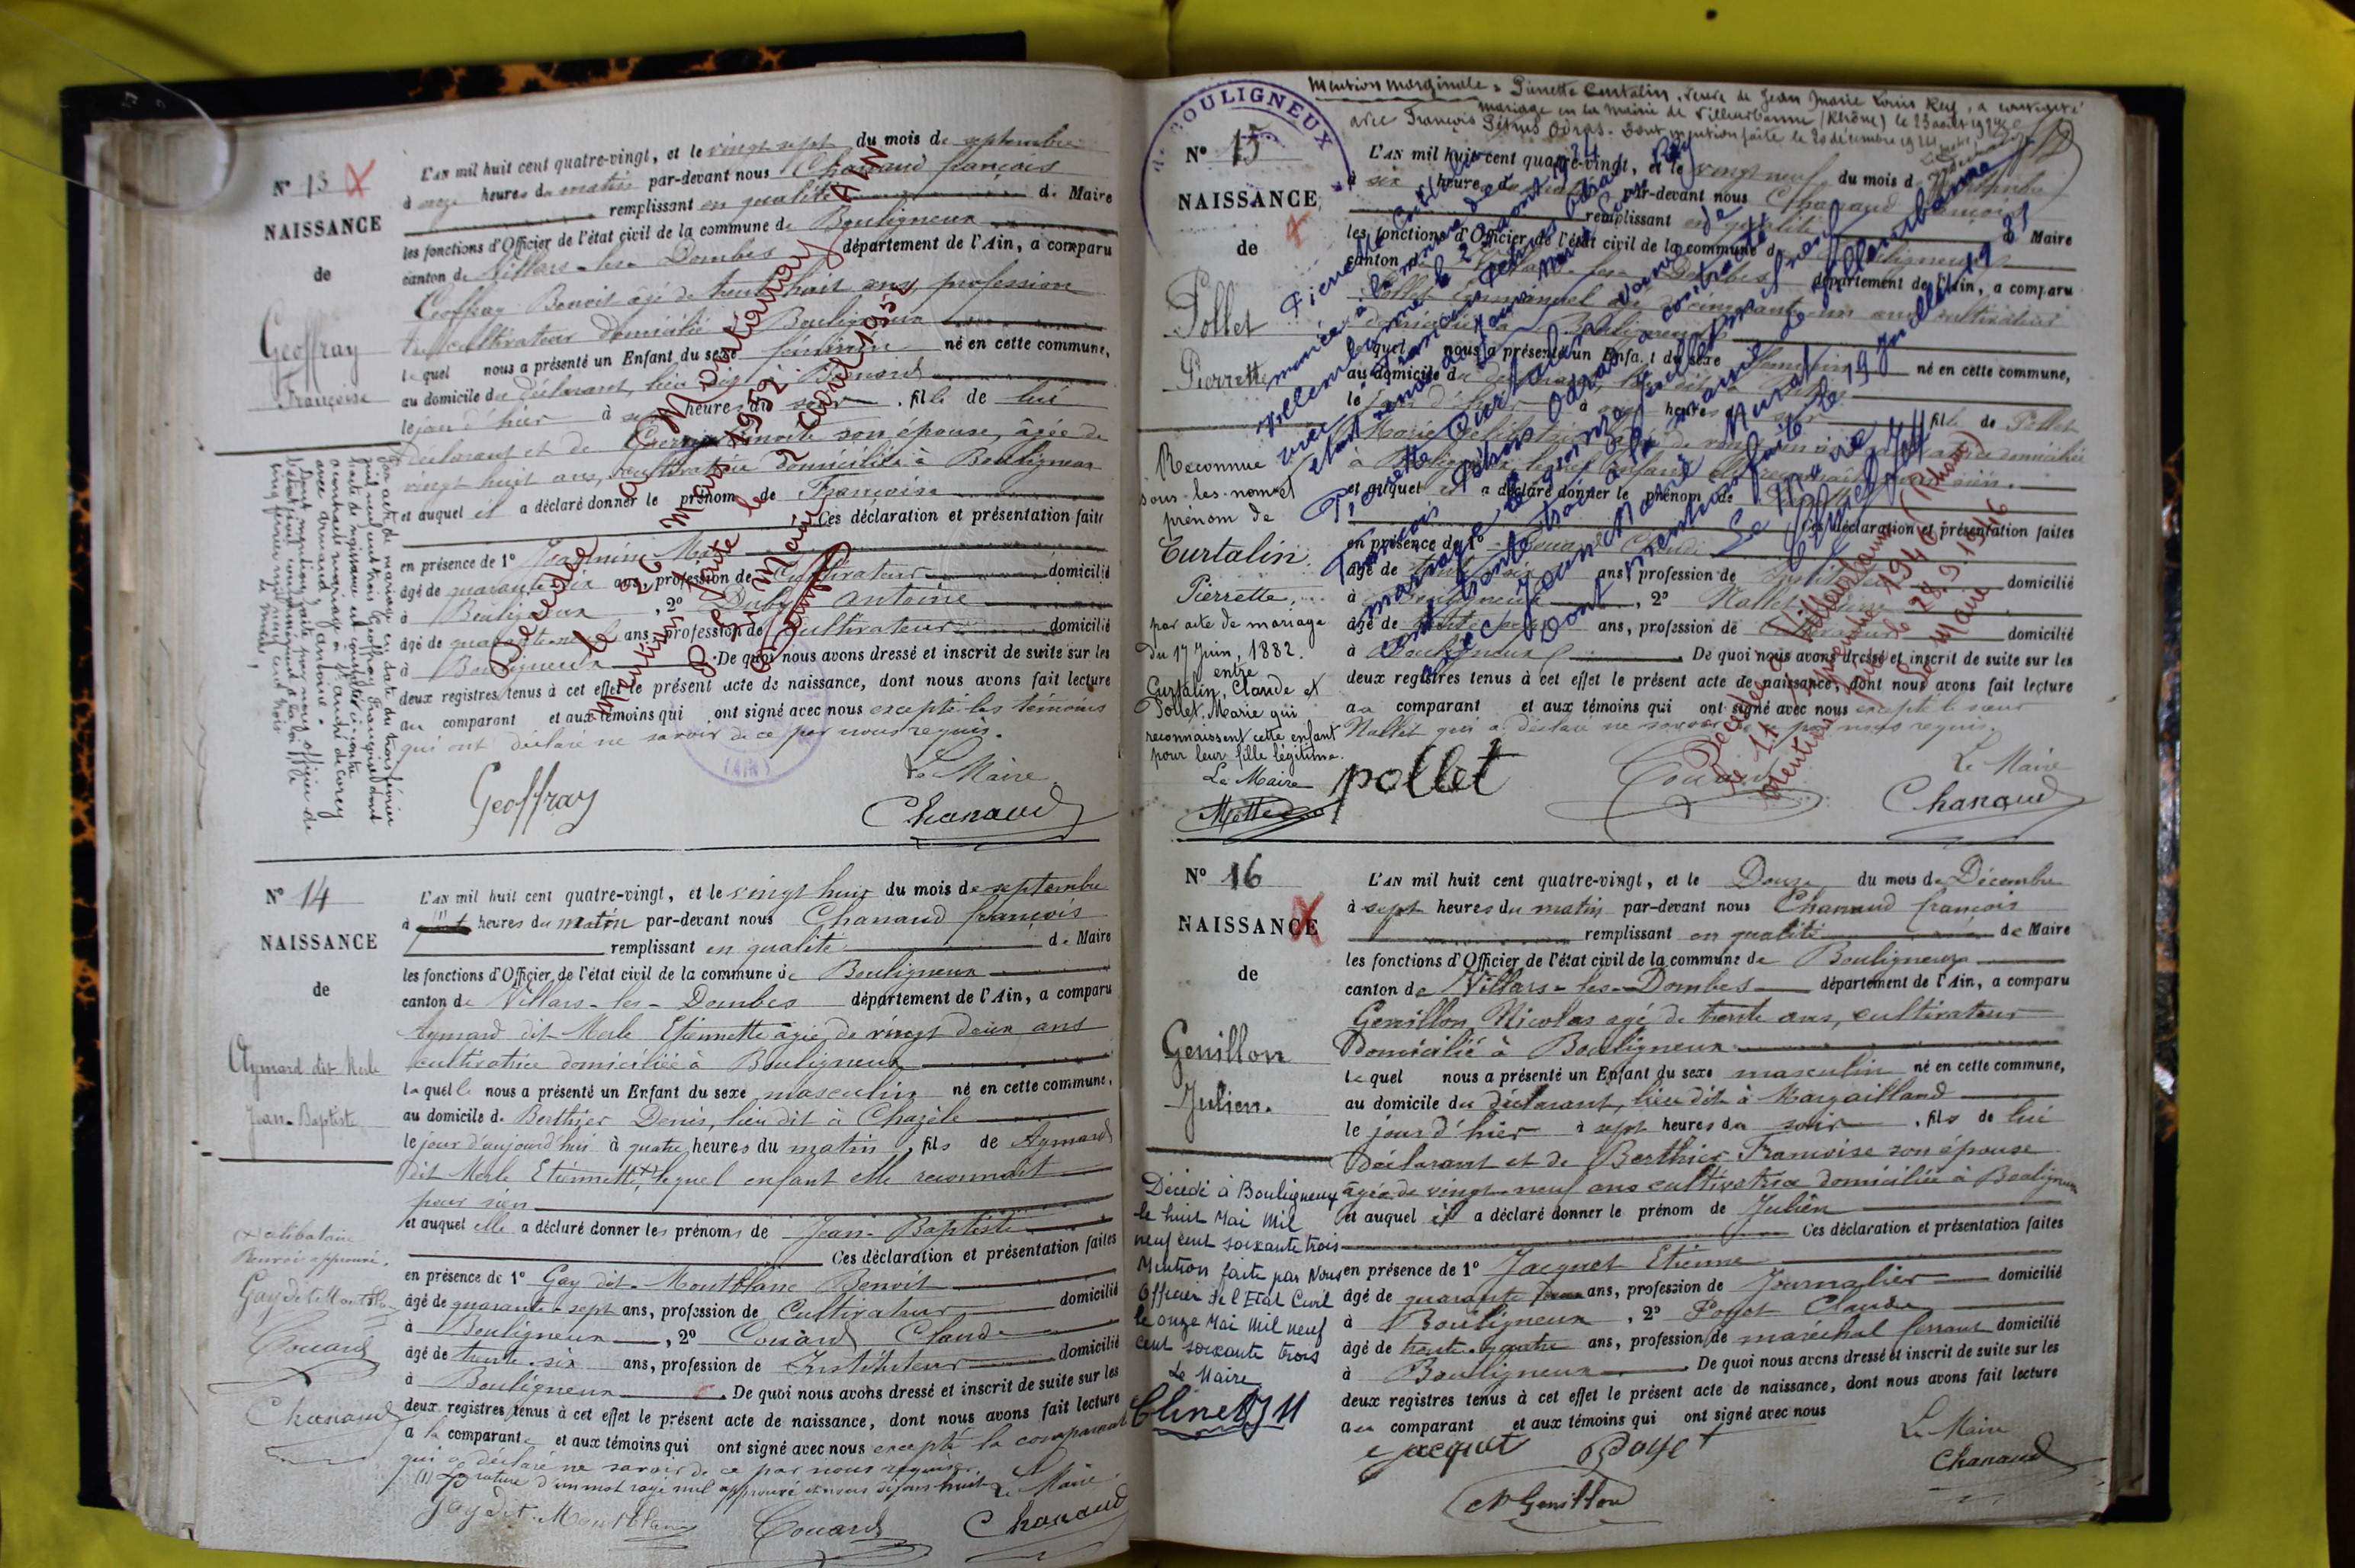 N° 13
NAISSANCE
de
Geoffray
Françoise
L'AN mil huit cent quatre-vingt, et le vingt sept du mois de septembre
à onze heures du matin par-devant nous Chanaud françois
remplissant en qualité de Maire
les fonctions d'Officier de l'état civil de la commune de Bouligneux
canton de Villars-les-Dombes département de l'Ain, a comparu
Geoffray Benoit âgé de trente huit ans, profession
de cultivateur domicilié à Bouligneux
lequel nous a présenté un Enfant du sexe féminin né en cette commune,
au domicile du déclarant, lieu dit à Bernard
le jour d'hier à heures du soir, fille de lui
Déclarant et de Benoite son épouse, âgée de
vingt huit ans, cultivatrice domiciliée à Bouligneux
et auquel il a déclaré donner le prénom de Françoise
Ces déclaration et présentation faites
en présence de 1° Jeannin
âgé de quarante six ans, profession de Cultivateur domicilié
à Bouligneux, 2° Duby Antoine
âgé de quarante ans, profession de Cultivateur domicilié
à Bouligneux De quoi nous avons dressé et inscrit de suite sur les
deux registres tenus à cet effet le présent acte de naissance, dont nous avons fait lecture
au comparant et aux témoins qui ont signé avec nous excepté les témoins
qui ont déclaré ne savoir de ce par nous requis.
Le Maire
Geoffray
Chanaud
Par acte de mariage en date du trois février
mil neuf cent trois Geoffray Françoise dont
l'acte de naissance est constaté ci-contre
a contracté mariage à St André de Corcy
avec
Dont mention faite par nous officier de
l'état civil
cinq février mil neuf cent trois
Le Maire,
Décédée à Montanay Ain
le 26 Mars 1952
Mention faite le 2 avril 1952
Le Maire
(AIN)
N° 14
NAISSANCE
de
Aymard dit Merle
Jean-Baptiste
L'AN mil huit cent quatre-vingt, et le vingt huit du mois de septembre
à heures du matin par-devant nous Chanaud françois
remplissant en qualité de Maire
les fonctions d'Officier de l'état civil de la commune de Bouligneux
canton de Villars-les-Dombes département de l'Ain, a comparu
Aymard dit Merle Etiennette âgée de vingt deux ans
cultivatrice domiciliée à Bouligneux
laquelle nous a présenté un Enfant du sexe masculin né en cette commune,
au domicile de Berthier Denis, lieu dit à Chazèle
le jour d'aujourd'hui à quatre heures du matin, fils de Aymard
dit Merle Etiennette, (x) lequel enfant elle reconnait
pour sien
et auquel elle a déclaré donner les prénoms de Jean-Baptiste
Ces déclaration et présentation faites
en présence de 1° Gay dit Montblanc Benoit
âgé de quarante-sept ans, profession de Cultivateur domicilié
à Bouligneux, 2° Couard Claude
âgé de trente-six ans, profession de Instituteur domicilié
à Bouligneux. De quoi nous avons dressé et inscrit de suite sur les
deux registres tenus à cet effet le présent acte de naissance, dont nous avons fait lecture
à la comparante et aux témoins qui ont signé avec nous excepté la comparante
qui a déclaré ne savoir de ce par nous requise.
(1) Rature d'un mot rayé nul approuvé et nous disons huit Le Maire
Gay dit Montblanc
Couard
Chanaud
(x) célibataire
Renvoi approuvé.
Gay dit Montblanc
Couard
Chanaud
Mention Marginale : Pierrette Curtalin, veuve de Jean Marie Louis Rey, a contracté
mariage en la Mairie de Villeurbanne (Rhône) le 23 août 1924
avec François Pétrus Odras. Dont mention faite le 20 décembre 1924
BOULIGNEUX
N° 15
NAISSANCE
de
Pollet
Pierrette
Reconnue
sous les nom et
prénom de
Curtalin,
Pierrette,
par acte de mariage
du 17 Juin, 1882.
entre
Curtalin, Claude et
Pollet, Marie qui
reconnaissent cette enfant
pour leur fille légitime.
Le Maire
L'AN mil huit cent quatre-vingt, et le vingt neuf du mois de septembre
à six heures du par-devant nous Chanaud françois
remplissant en qualité de Maire
les fonctions d'Officier de l'état civil de la commune de Bouligneux
canton de Villars-les-Dombes département de l'Ain, a comparu
Pollet Emmanuel âgé de cinquante un ans, cultivateur
domicilié à Bouligneux
lequel nous a présenté un Enfant du sexe féminin né en cette commune,
au domicile du déclarant, lieu dit
le jour d'hier à heures du soir, fille de Pollet
Marie célibataire âgée de vingt ans domiciliée
à Bouligneux, lequel enfant
et auquel il a déclaré donner le prénom de
Ces déclaration et présentation faites
en présence de 1° Couard Claude
âgé de trente six ans, profession de Instituteur domicilié
à Bouligneux, 2° Nallet
âgé de ans, profession de cultivateur domicilié
à Bouligneux De quoi nous avons dressé et inscrit de suite sur les
deux registres tenus à cet effet le présent acte de naissance, dont nous avons fait lecture
au comparant et aux témoins qui ont signé avec nous excepté le sieur
Nallet qui a déclaré ne savoir de ce par nous requis.
Le Maire
pollet
Couard
Chanaud
Pierrette Curtalin
mariée à la mairie de
Villeurbanne le 23 août 1924
avec François Pétrus Odras
étant veuve de Jean Marie Louis Rey
Pierrette Curtalin veuve de
François Pétrus Odras a contracté
mariage le onze juillet mil neuf
cent trente trois à la mairie de Villeurbanne
avec Jean Marie Murat
Dont mention faite le 19 Juillet 1933
Le Maire
Décédée à Villeurbanne (Rhône)
le 11 septembre 1946
Mention faite le 28.9.1946
Le Maire
N° 16
NAISSANCE
de
Genillon
Julien.
L'AN mil huit cent quatre-vingt, et le Douze du mois de Décembre
à sept heures du matin par-devant nous Chanaud françois
remplissant en qualité de Maire
les fonctions d'Officier de l'état civil de la commune de Bouligneux
canton de Villars-les-Dombes département de l'Ain, a comparu
Genillon Nicolas agé de trente ans, cultivateur
Domicilié à Bouligneux
lequel nous a présenté un Enfant du sexe masculin né en cette commune,
au domicile du déclarant, lieu dit à Margailland
le jour d'hier à sept heures du soir, fils de lui
Déclarant et de Berthier Francoise son épouse
âgée de vingt-neuf ans cultivatrice domiciliée à Bouligneux
et auquel il a déclaré donner le prénom de Julien
Ces déclaration et présentation faites
en présence de 1° Jacquet Etienne
âgé de quarante ans, profession de Journalier domicilié
à Bouligneux, 2° Poyet Claude
âgé de trente-quatre ans, profession de maréchal ferrant domicilié
à Bouligneux De quoi nous avons dressé et inscrit de suite sur les
deux registres tenus à cet effet le présent acte de naissance, dont nous avons fait lecture
au comparant et aux témoins qui ont signé avec nous
Le Maire
Jacquet
Poyet
Chanaud
N Genillon
Décédé à Bouligneux
le huit Mai Mil
neuf cent soixante trois
Mention faite par Nous
Officier de l'Etat Civil
le onze Mai Mil neuf
cent soixante trois
Le Maire